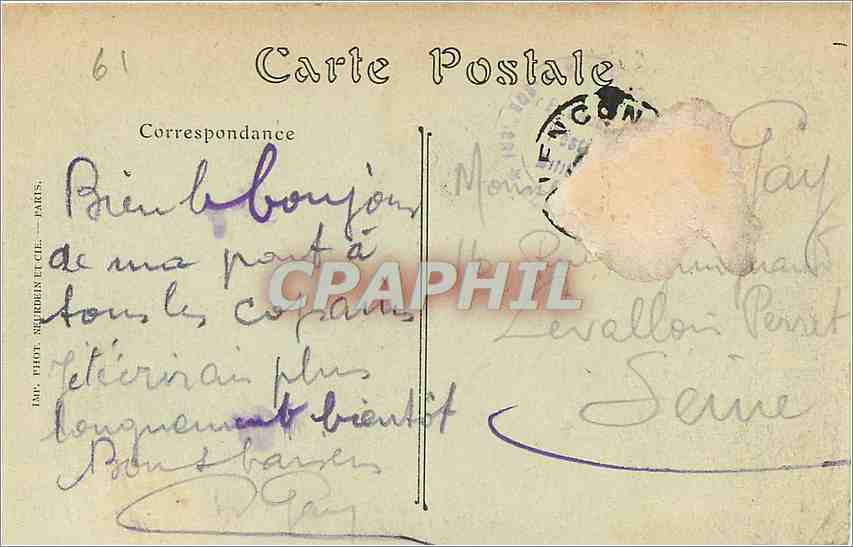 61
Carte Postale
Correspondance
Bien le bonjour
de ma part à
tous les copains
Je t'écrirais plus
longuement bientôt
Bons baisers
Gay
IMP. PHOT. NEURDEIN ET CIE. — PARIS.
ENCON
Gay
Levallois Perret
Seine
CPAPHIL